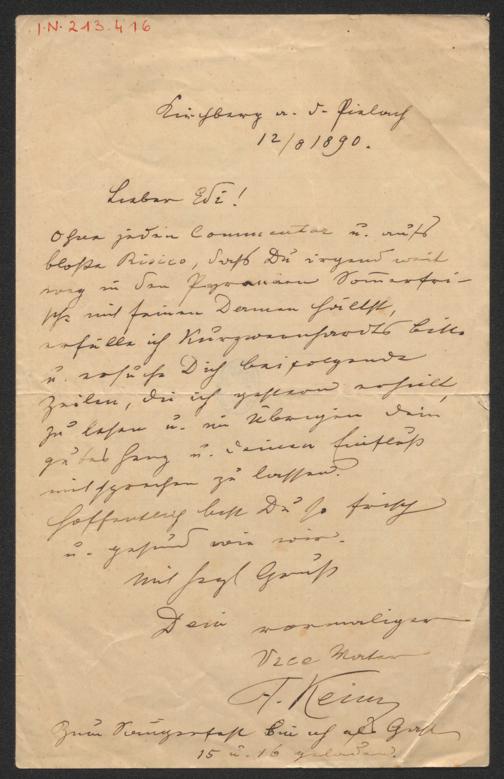 I.N. 213.416
Kirchberg a. d. Pielach
12/8 1890.
Lieber Edi!
Ohne jeden Commentar u. aufs
bloße Risico, daß Du irgend weit
weg in den Pyrenäen Sommerfri-
sche mit feinen Damen hältst,
erfülle ich Kurzweernhardts Bitte
u. ersuche Dich beifolgende
Zeilen, die ich gestern erhielt,
zu lesen u. im Übrigen Dein
gutes Herz u. Deinen Einfluß
mitsprechen zu lassen.
Hoffentlich bist Du so frisch
u. gesund wie wir.
Mit herzl Gruß
Dein vormaliger
Vice Mater
F. Keim
Zum Sängerfest bin ich als Gast
15 u. 16 geladen.